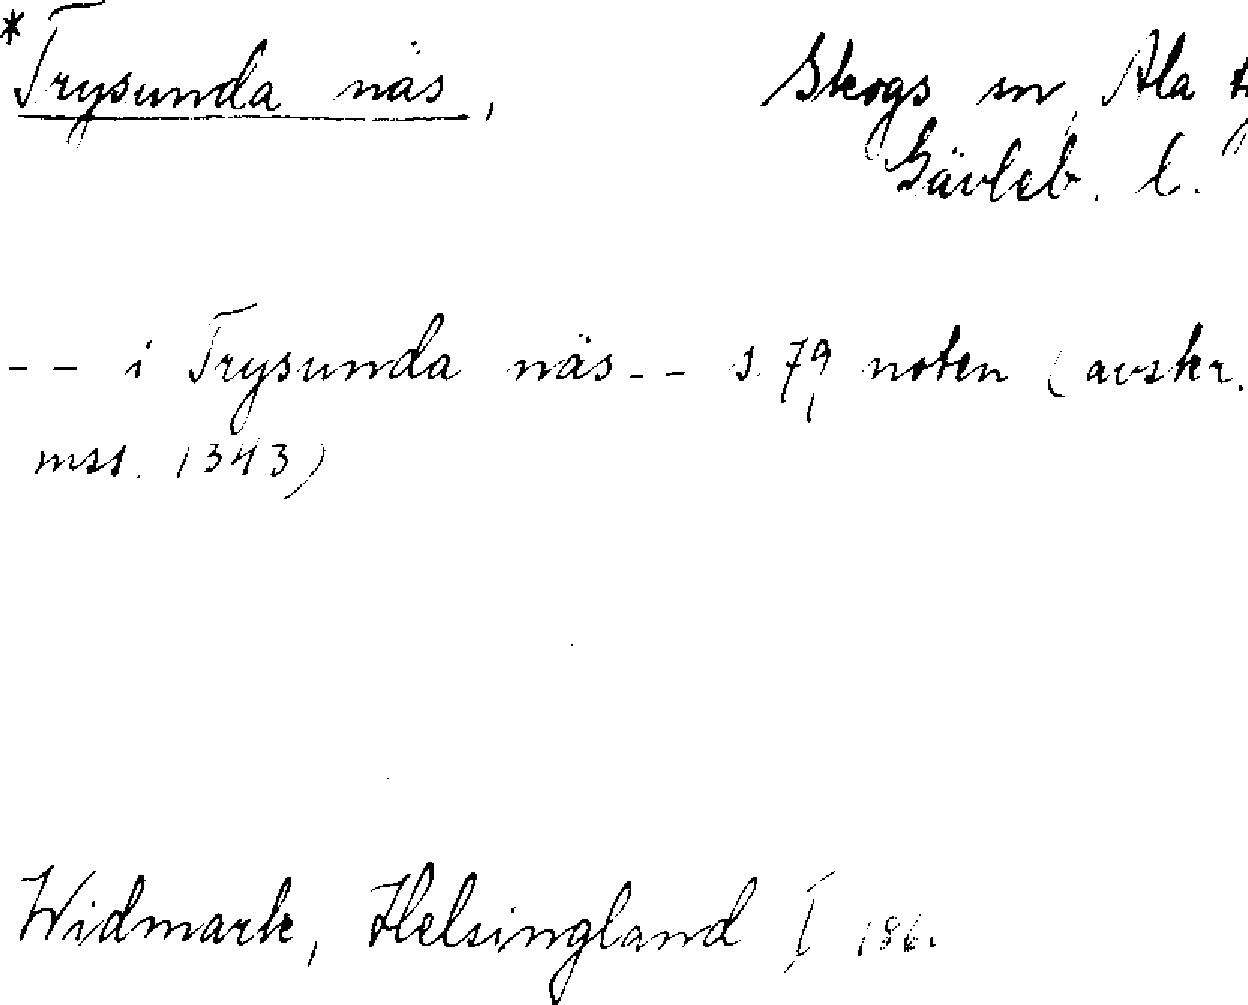 *Trysunda näs, Skogs sn, Ala
Gävleb. l.
-- i Trysunda näs -- s. 79, noten (avskr.
mss. 1343)
Widmark, Helsingland I